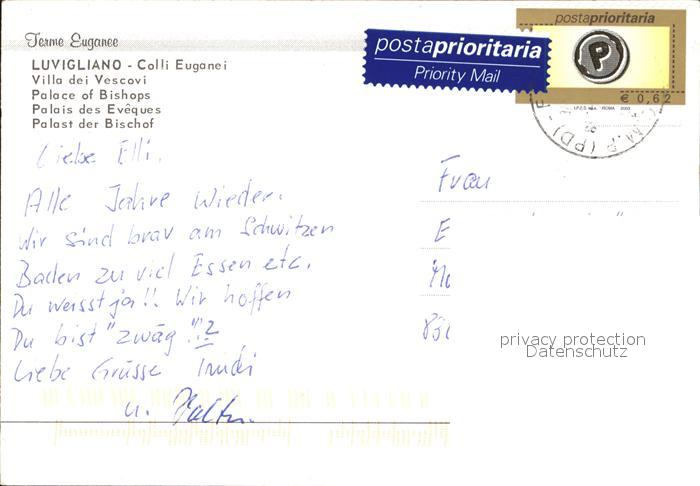 Terme Euganee
LUVIGLIANO - Colli Euganei
Villa dei Vescovi
Palace of Bishops
Palais des Evêques
Palast der Bischof
postaprioritaria
Priority Mail
postaprioritaria
P
€ 0,62
I.P.Z.S. S.p.A. ROMA 2002
Liebe Elli.
Alle Jahre Wieder.
Wir sind brav am Schwitzen
Baden zu viel Essen etc.
Du weisst ja!! Wir hoffen
Du bist "zwäg"!?
Liebe Grüsse Trudi
u. Walter.
Frau
E
privacy protection
Datenschutz